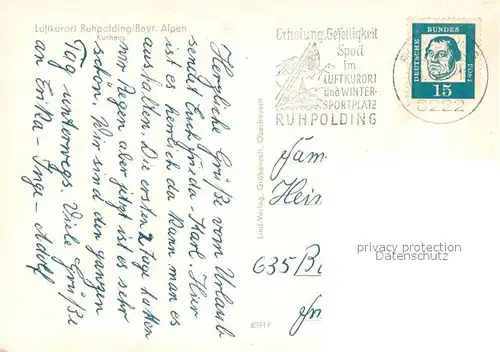 Luftkurort Ruhpolding/Bayr. Alpen
Kurhaus
Herzliche Grüße vom Urlaub
sendet Euch Frieda - Karl. Hier
ist es herrlich da kann man es
aushalten. Die ersten 2 Tage hatten
wir Regen aber jetzt ist es sehr
schön. Wir sind den ganzen
Tag unterwegs. Viele Grüße
an Erika - Inge - Adolf
Lind-Verlag, Grabenzell, Oberbayern
6391 F
Erholung, Geselligkeit
Sport
im
LUFTKURORT
und WINTER-
SPORTPLATZ
RUHPOLDING
DEUTSCHE BUNDES
POST
15
8222
Fam
Hein
635 B
privacy protection
Datenschutz